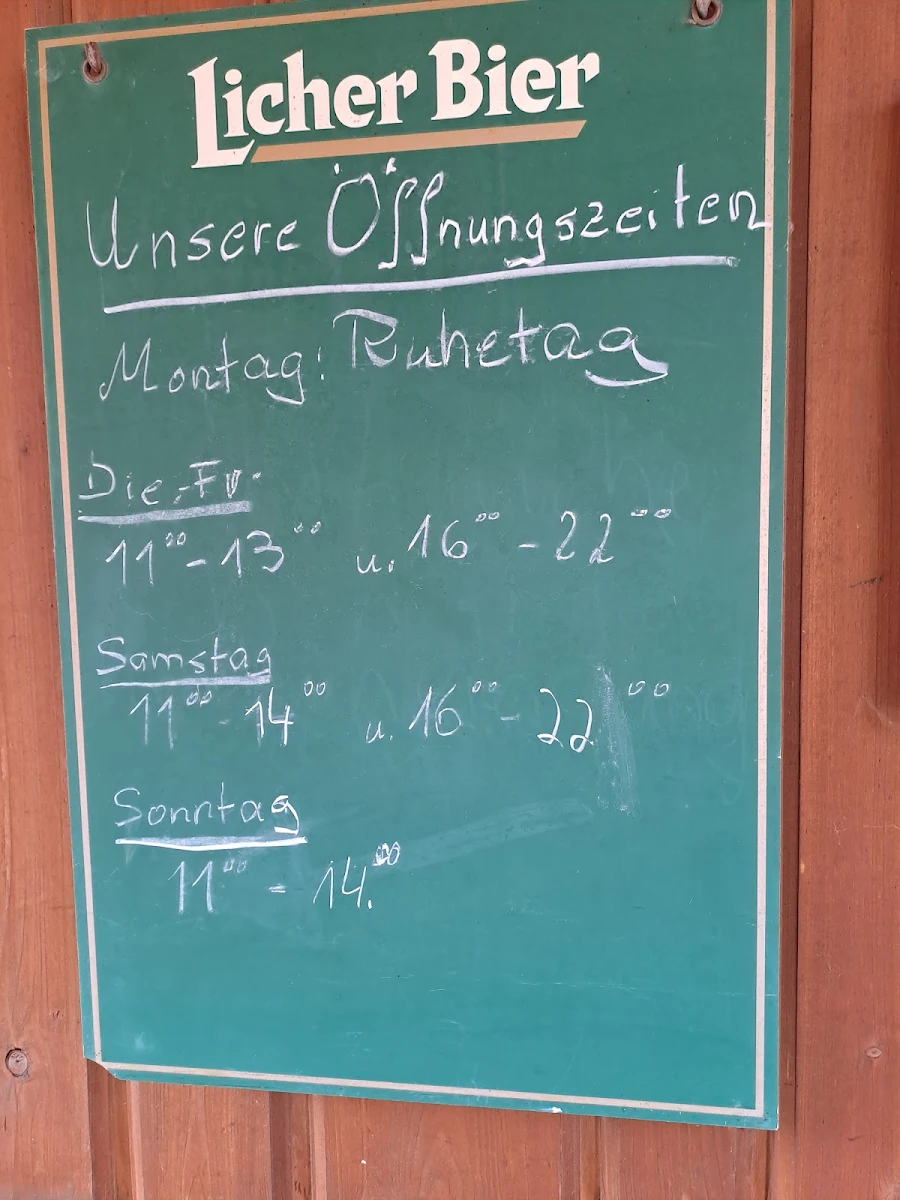 Licher Bier
Unsere Öffnungszeiten
Montag: Ruhetag
Die.-Fr.
11⁰⁰ - 13⁰⁰ u. 16⁰⁰ - 22⁰⁰
Samstag
11⁰⁰ - 14⁰⁰ u. 16⁰⁰ - 22⁰⁰
Sonntag
11⁰⁰ - 14.⁰⁰